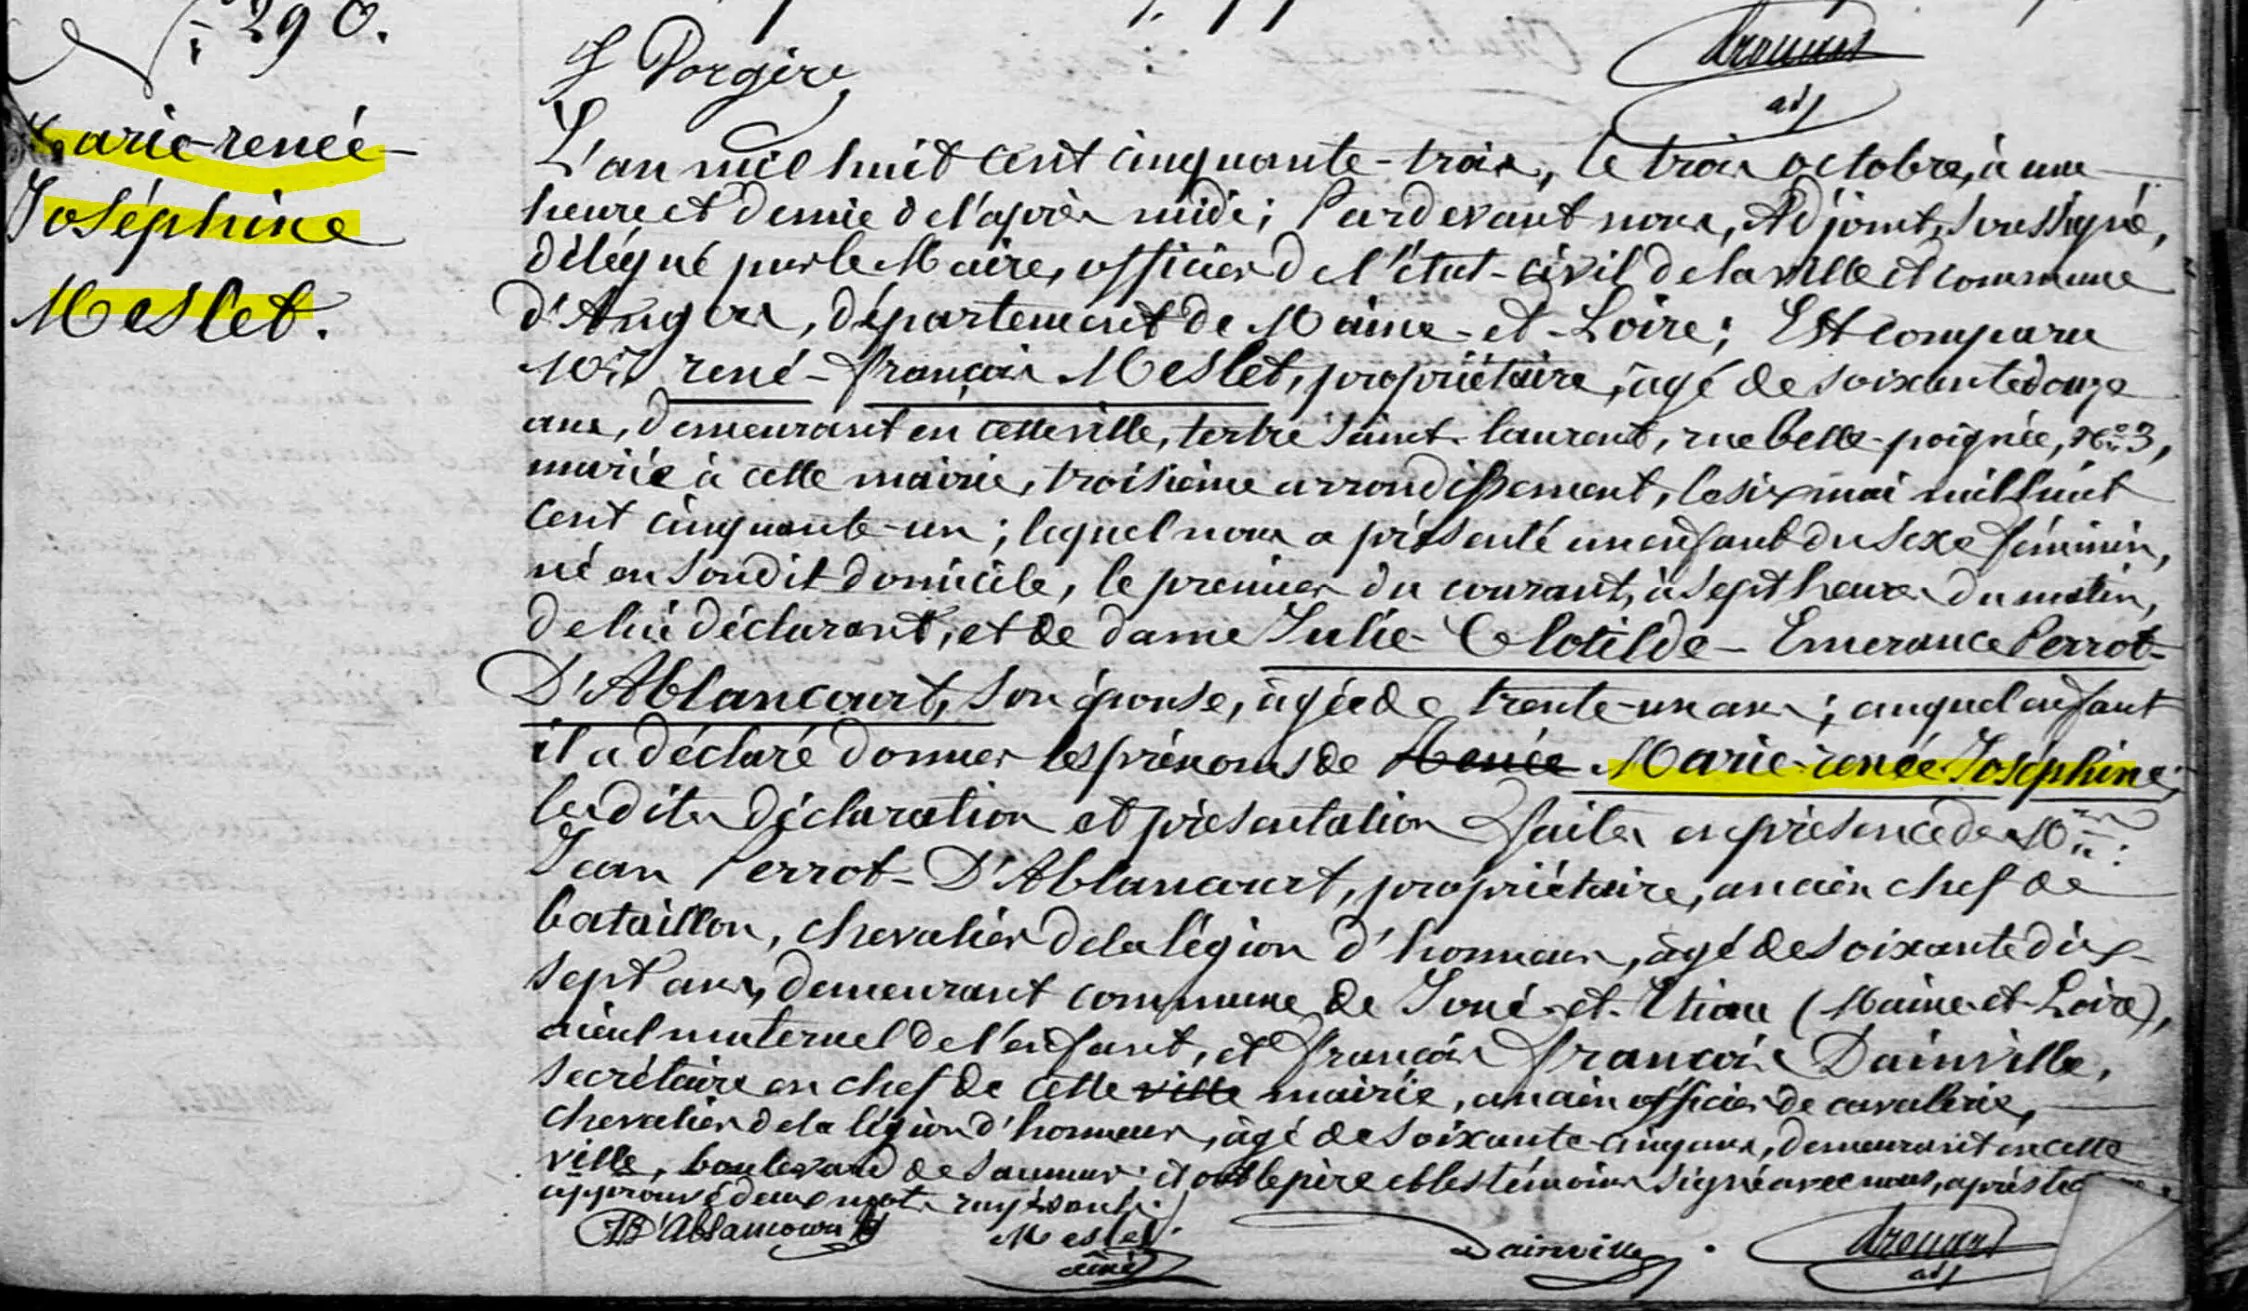 290.
f Porgire
adj
Marie-renée-
Joséphine
Meslet.
L'an mil huit cent cinquante-trois, le trois octobre, à une
heure et demie de l'après midi; Pardevant nous, Adjoint, soussigné,
délégué par le Maire, officier de l'état-civil de la ville et commune
d'Angers, département de Maine-et-Loire; Est comparu
Mr. rené-françois Meslet, propriétaire, âgé de soixante douze
ans, demeurant en cette ville, tertre saint-laurent, rue belle-poignée, No. 3,
marié à cette mairie, troisième arrondissement, le six mai mil huit
cent cinquante-un; lequel nous a présenté un enfant du sexe féminin,
né en son dit domicile, le premier du courant, à sept heures du matin,
de lui déclarant, et de dame Julie-Clotilde-Emerance Perrot-
D'Ablancourt, son épouse, âgée de trente-un ans; auquel enfant
il a déclaré donner les prénoms de Renée Marie-renée-Joséphine;
lesdites déclaration et présentation faites en présence de Mrs:
Jean Perrot-D'Ablancourt, propriétaire, ancien chef de
bataillon, chevalier de la légion d'honneur, âgé de soixante dix-
sept ans, demeurant commune de Joué-et-Etiau (Maine-et-Loire),
aieul maternel de l'enfant, et françois françois Dainville,
secrétaire en chef de cette ville mairie, ancien officier de cavalerie,
chevalier de la légion d'honneur, âgé de soixante-cinq ans, demeurant en cette
ville, boulevard de Saumur; et ont le père et les témoins signé avec nous, après lec
approuvé deux mots rayés nuls.
D'Ablancourt Meslet Dainville
aîné adj